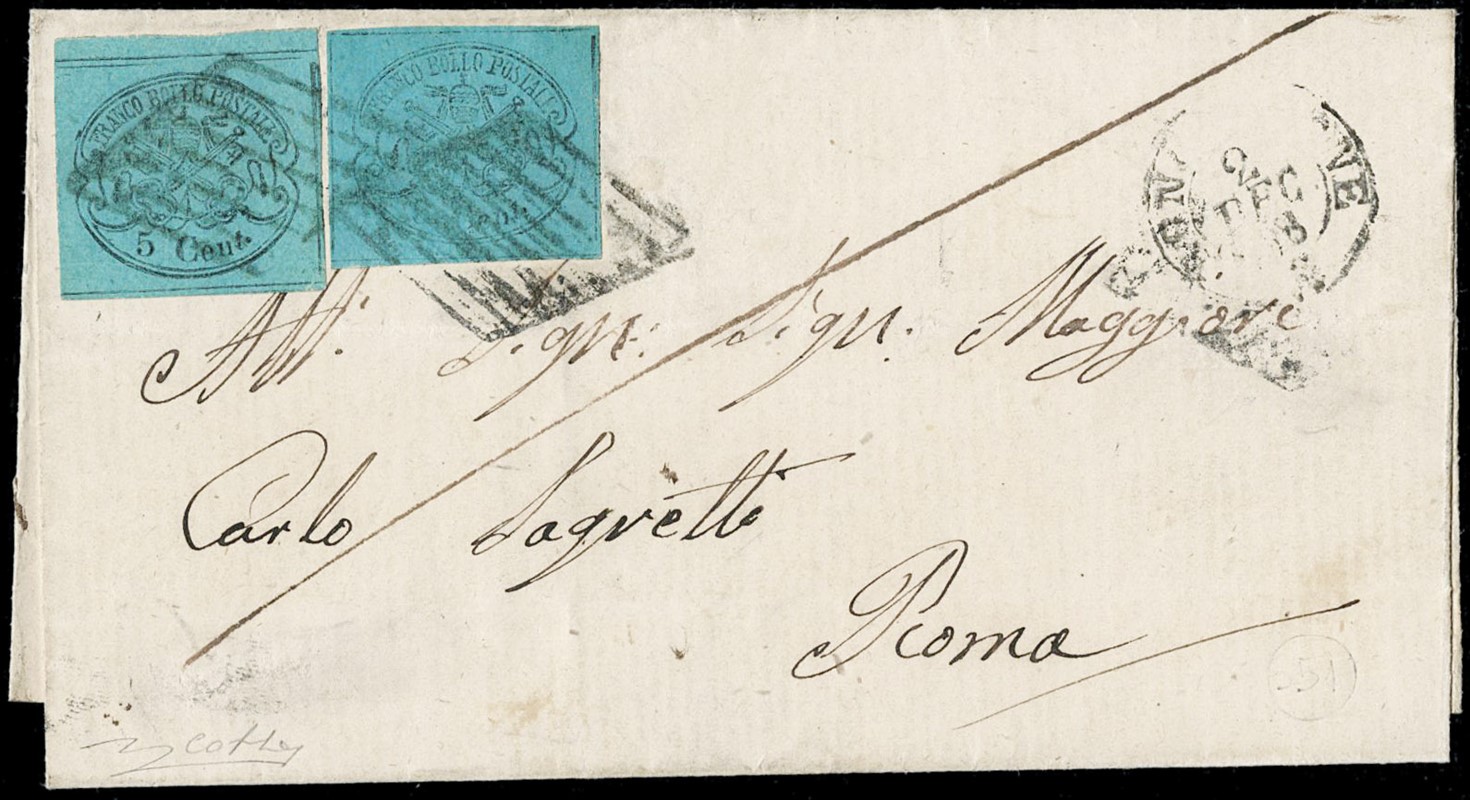 FRANCO BOLLO POSTALE
5 Cent.
FRANCO BOLLO POSTALE
Cent.
2
DEC
All' Sign: Sign. Maggiore
Carlo Sagretti
Roma